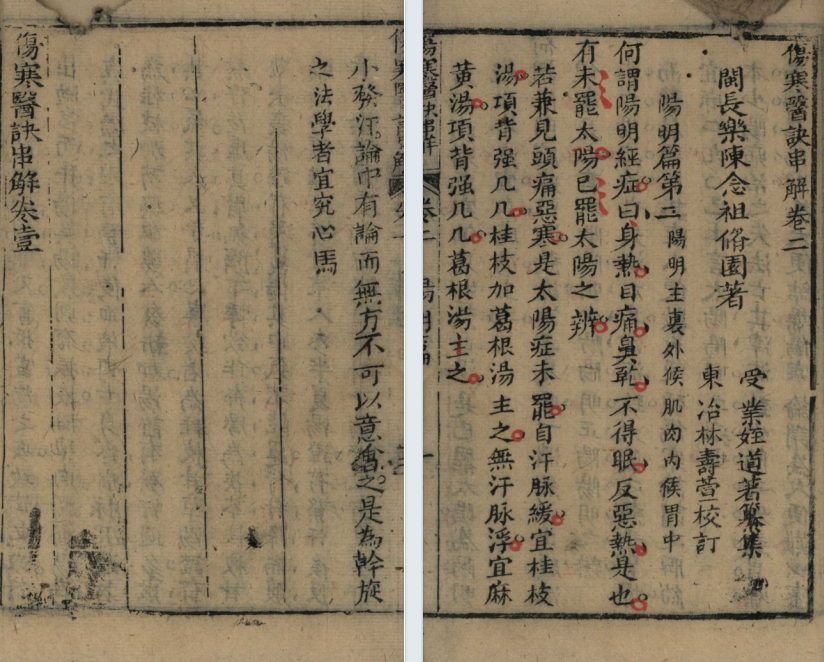 傷寒醫訣串解卷二
閩長樂陳念祖脩園著
受業姪道著纂集
東冶林壽萱校訂
陽明篇第二 陽明主裏外候肌肉內候胃中
何謂陽明經症曰身熱目痛鼻乾不得眠反惡熱是也
有未罷太陽已罷太陽之辨
若兼見頭痛惡寒是太陽症未罷自汗脉緩宜桂枝
湯項背强几几桂枝加葛根湯主之無汗脉浮宜麻
黃湯項背强几几葛根湯主之
傷寒醫訣串解
卷二
陽明篇
一
小發汗論中有論而無方不可以意會之是為幹旋
之法學者宜究心焉
傷寒醫訣串解卷壹